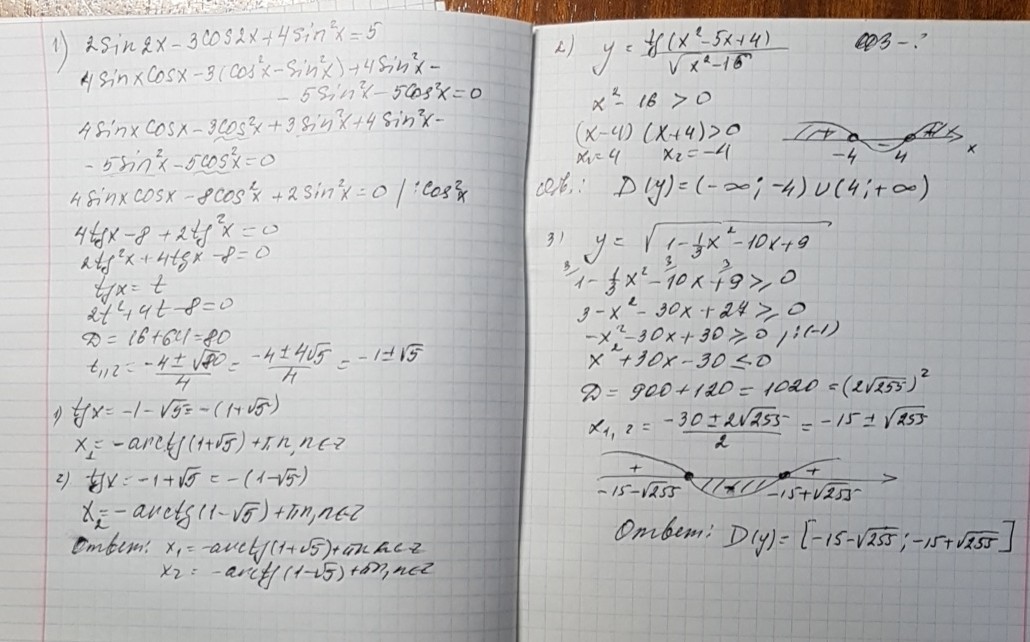 1) 2sin2x - 3cos2x + 4sin²x = 5
4sinxcosx - 3(cos²x - sin²x) + 4sin²x -
- 5sin²x - 5cos²x = 0
4sinxcosx - 3cos²x + 3sin²x + 4sin²x -
- 5sin²x - 5cos²x = 0
4sinxcosx - 8cos²x + 2sin²x = 0 | : cos²x
4tgx - 8 + 2tg²x = 0
2tg²x + 4tgx - 8 = 0
tgx = t
2t² + 4t - 8 = 0
D = 16 + 64 = 80
t₁,₂ = (-4 ± √80)/4 = (-4 ± 4√5)/4 = -1 ± √5
1) tgx = -1 - √5 = -(1 + √5)
x₁ = -arctg(1 + √5) + πn, n ∈ z
2) tgx = -1 + √5 = -(1 - √5)
x₂ = -arctg(1 - √5) + πn, n ∈ z
Ответ: x₁ = -arctg(1 + √5) + πn, n ∈ z
x₂ = -arctg(1 - √5) + πn, n ∈ z
2) y = tg(x² - 5x + 4)/√(x² - 16) ООЗ - ?
x² - 16 > 0
(x - 4)(x + 4) > 0
x₁ = 4 x₂ = -4
+ - +
-4 4 x
Отв.: D(y) = (-∞; -4) ∪ (4; +∞)
3) y = √(1 - ⅓x² - 10x + 9)
³/1 - ⅓x² - ³/10x + ³/9 ⩾ 0
3 - x² - 30x + 27 ⩾ 0
-x² - 30x + 30 ⩾ 0 /: (-1)
x² + 30x - 30 ≤ 0
D = 900 + 120 = 1020 = (2√255)²
x₁,₂ = (-30 ± 2√255)/2 = -15 ± √255
+ - +
-15 - √255 -15 + √255
Ответ: D(y) = [-15 - √255; -15 + √255]